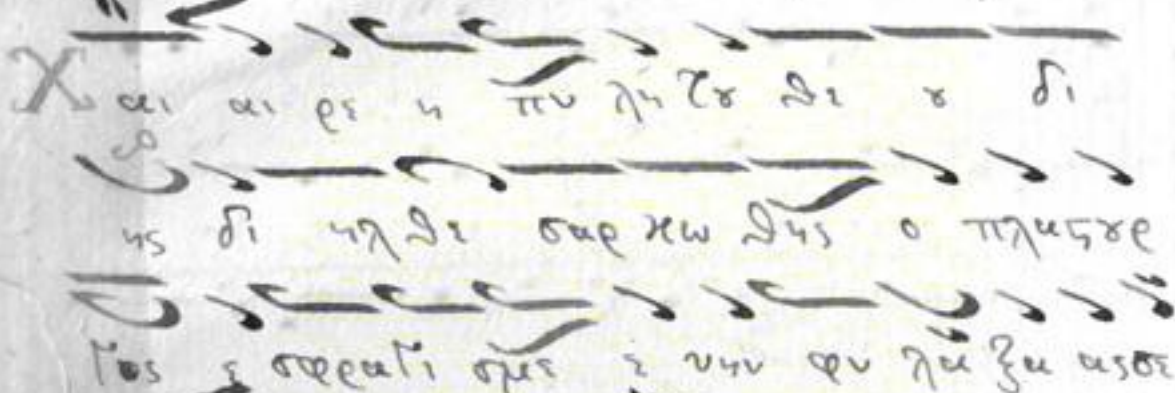 Χ αι αι ρε η πυ λη τȣ θε ȣ δι
ης δι ηλ θε σαρ κω θης ο πλαϛȣρ
γος ε σφρα γι σμε ε νην φυ λα ξα ας σε